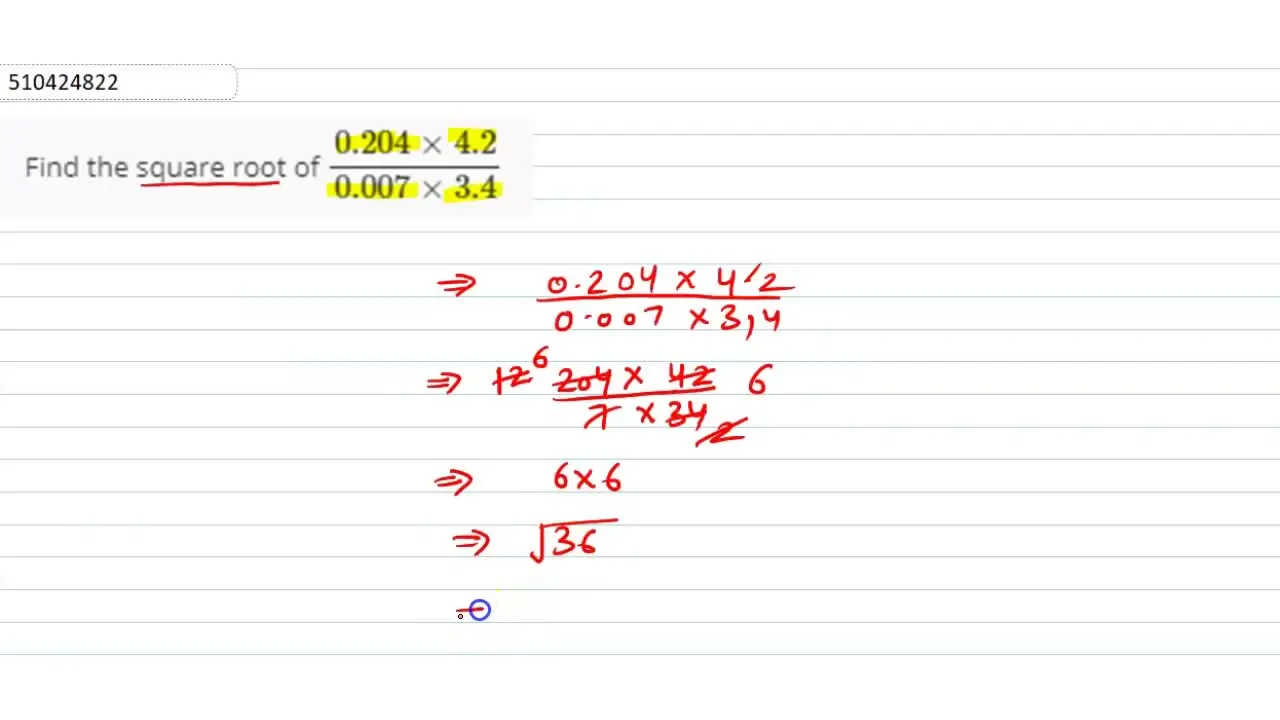 510424822
Find the square root of 0.204 × 4.2
0.007 × 3.4
⇒ 0.204 × 4.2
0.007 × 3.4
⇒ 12 6 204 × 42 6
7 × 34 2
⇒ 6×6
⇒ √36